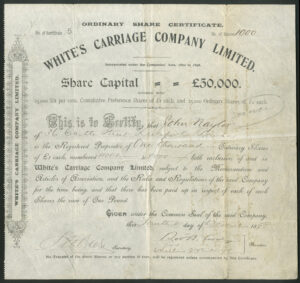 ORDINARY SHARE CERTIFICATE.
No. of Certificate 5
No. of Shares 1000
WHITE'S CARRIAGE COMPANY LIMITED.
Incorporated under the Companies' Acts, 1862 to
Share Capital £50,000.
25,000 Six per cent. Cumulative Preference Shares of £1 each, and 25,000 Ordinary Shares of £1 each.
This is to Certify that John Naylor
of Castle
is the Registered Proprietor of One Thousand Ordinary Shares
of £1 each, numbered to both inclusive of and in
White's Carriage Company Limited, subject to the Memorandum and
Articles of Association, and the Rules and Regulations of the said Company
for the time being and that there has been paid up in respect of each of such
Shares the sum of One Pound.
GIVEN under the Common Seal of the said Company
this day of
Secretary
No Transfer of the above Shares, or any portion of them, will be registered unless accompanied by this Certificate.
WHITE'S CARRIAGE COMPANY LIMITED.